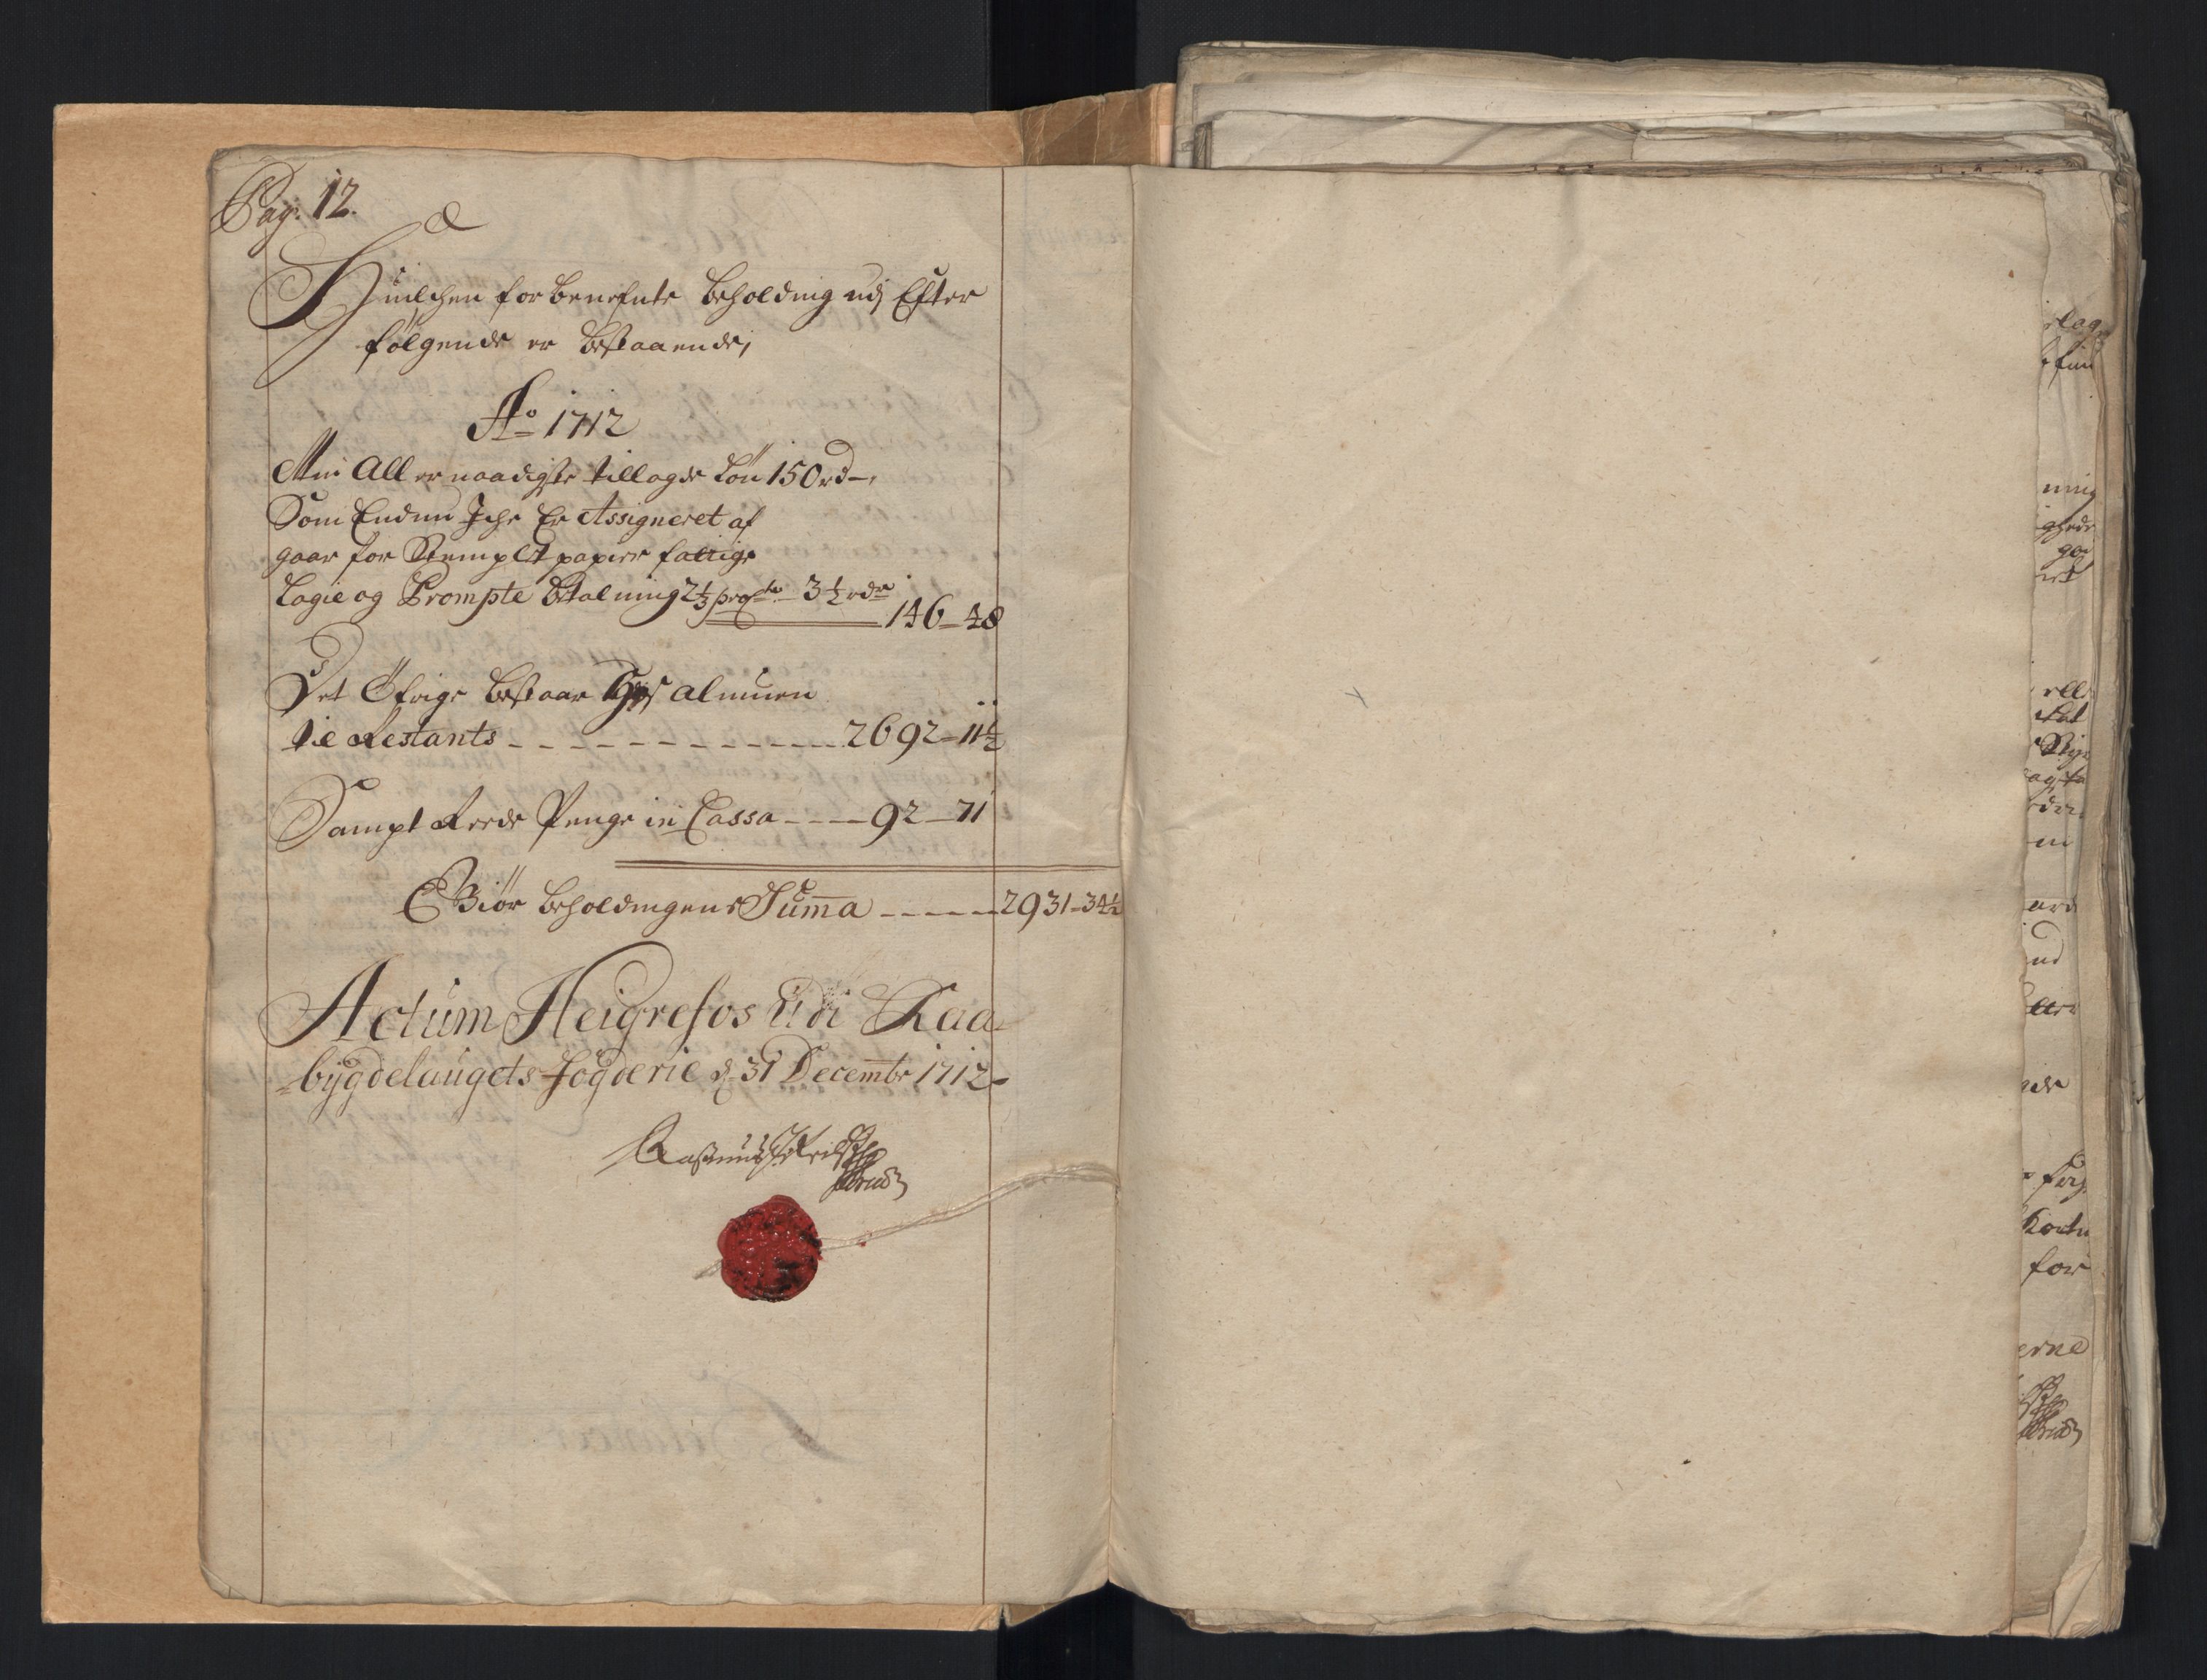 Pag: 12.
Huilchen forbenefnte beholding udj Efter
følgende er bestaaende,
Ao 1712
Min Allernaadigste tillagde Løn 150 rd –
Som Endnu Iche Er Assigneret af
gaar for Stemplet papier fattige
Lagie og Prompte betalning 2⅓ procto – 3½ rdr
146 – 48
Det Øfrige bestaar Hos almuen
tie Restants – – – – 2692 – 11½
Sampt Reede Penge in Cassa – – – – 92 – 71
Giør beholdingens Summa – – – – – 2931 – 34½
Actum Heigrefos Udi Raa-
-bygdelaugets fogderie d 31 Decembr 1712 –
Rasmus
rlag
fin
ning
gaa
elle
en
ud
for
erne